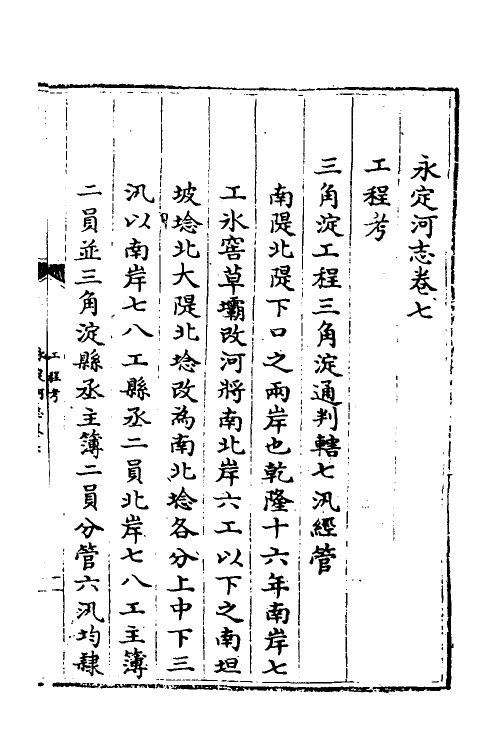 永定河志卷七
工程考
三角淀工程三角淀通判轄七汛經管
南隄北隄下口之兩岸也乾隆十六年南岸七
工氷窖草壩改河將南北岸六工以下之南坦
坡埝北大隄北埝改為南北埝各分上中下三
汛以南岸七八工縣丞二員北岸七八工主簿
二員並三角淀縣丞主簿二員分管六汛均隷
工程考
永定河志卷七